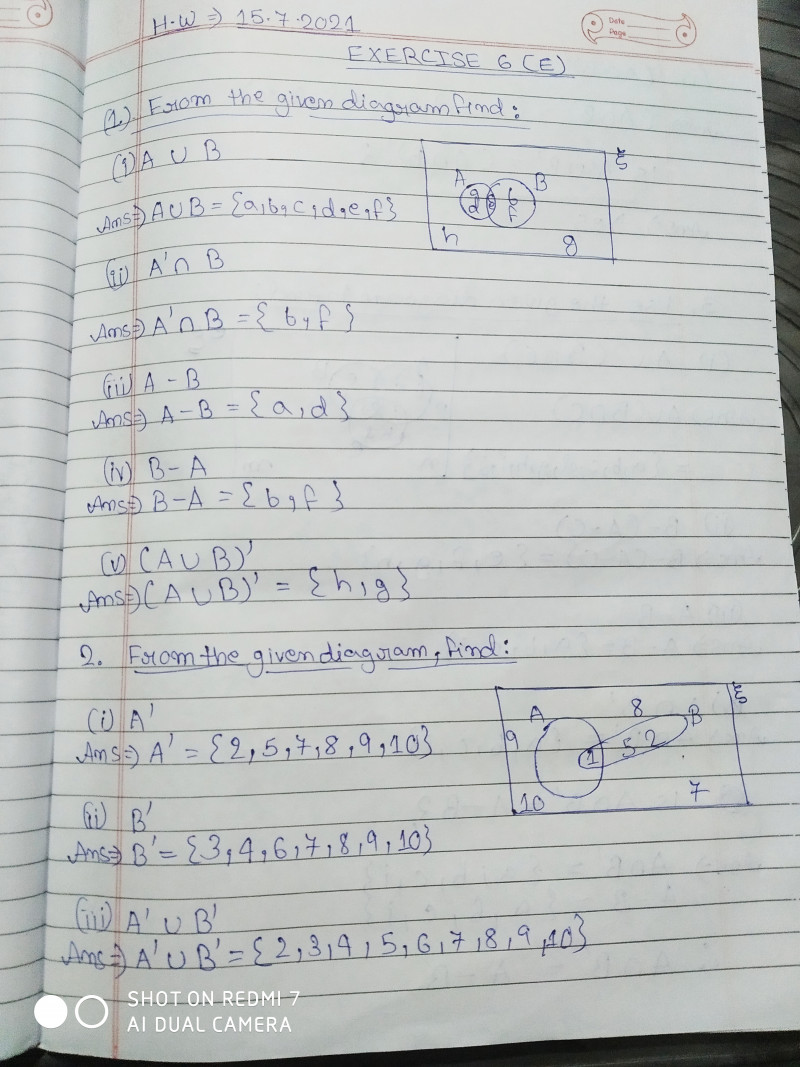 Date
Page
H.W ⇒ 15.7.2021
EXERCISE 6 (E)
(1.) From the given diagram find:
(i) A ∪ B
Ans⇒ A∪B = {a,b,c,d,e,f}
A B ξ
a d b f
h g
(ii) A' ∩ B
Ans⇒ A' ∩ B = { b, f }
(iii) A - B
Ans⇒ A - B = { a, d }
(iv) B - A
Ans⇒ B - A = { b, f }
(v) (A ∪ B)'
Ans⇒ (A ∪ B)' = { h, g }
2. From the given diagram, find:
(i) A'
Ans⇒ A' = {2, 5, 7, 8, 9, 10}
A 8 B ξ
9 1 5 2
10 7
(ii) B'
Ans⇒ B' = {3, 4, 6, 7, 8, 9, 10}
(iii) A' ∪ B'
Ans⇒ A' ∪ B' = {2, 3, 4, 5, 6, 7, 8, 9, 10}
SHOT ON REDMI 7
AI DUAL CAMERA